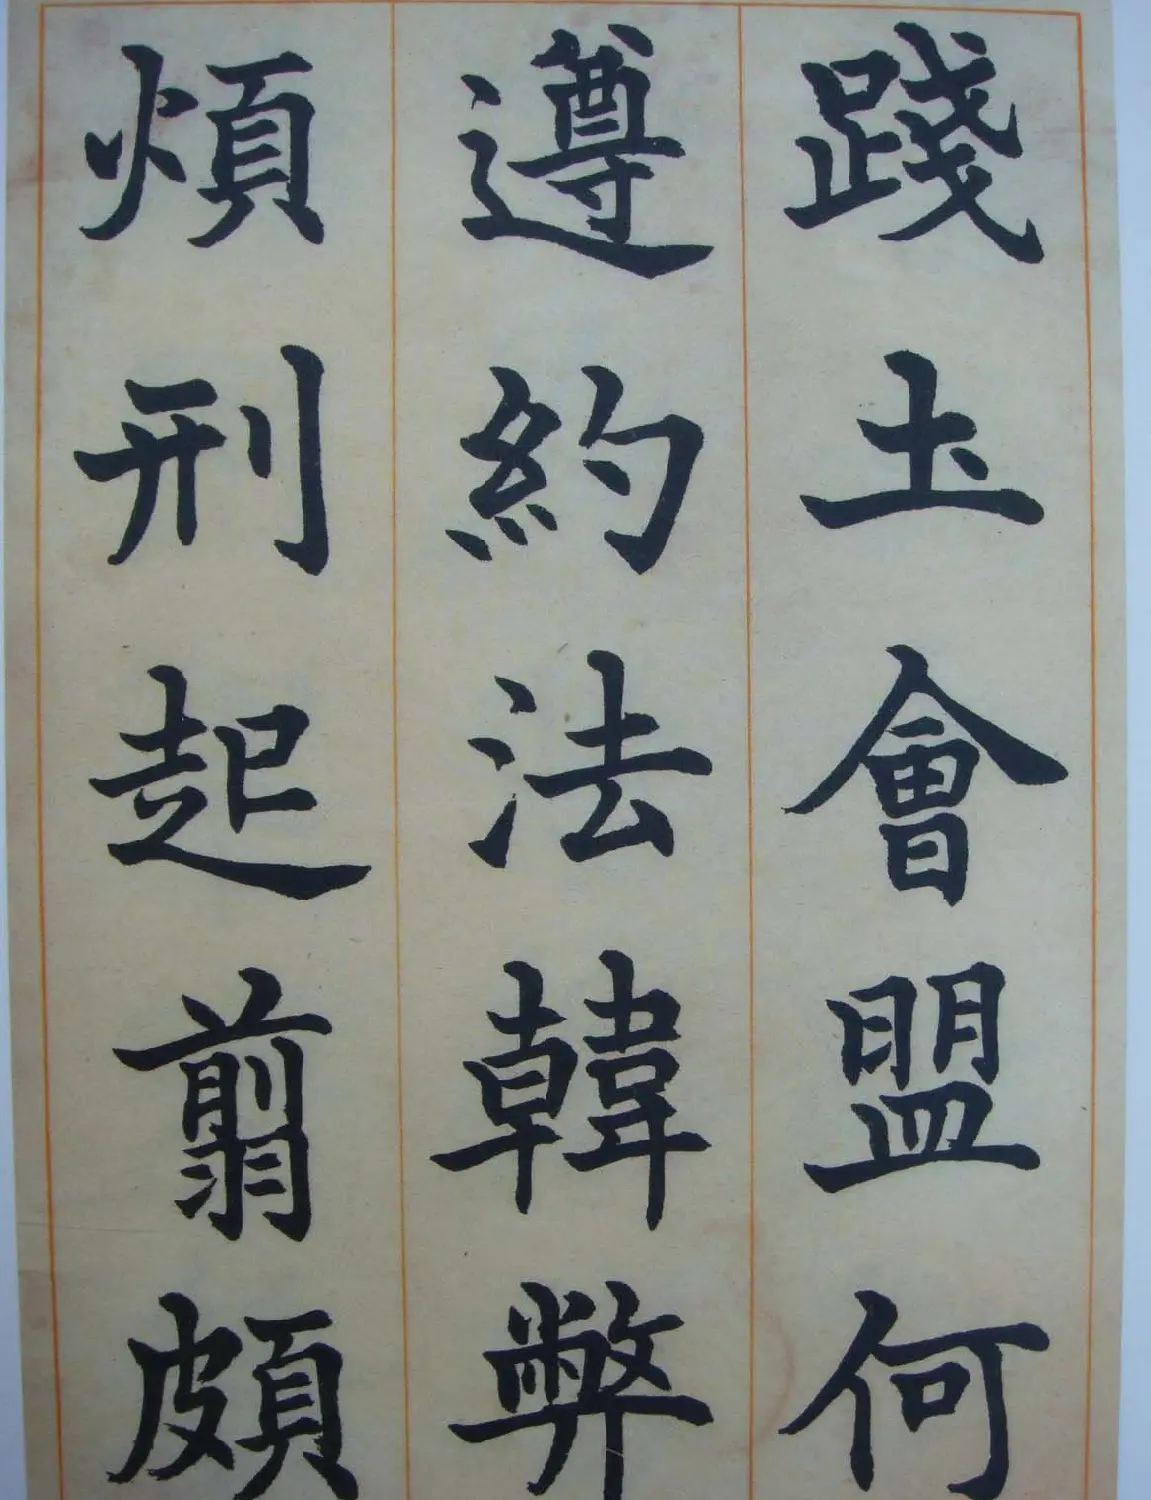 踐土會盟何
遵約法韓弊
煩刑起翦頗